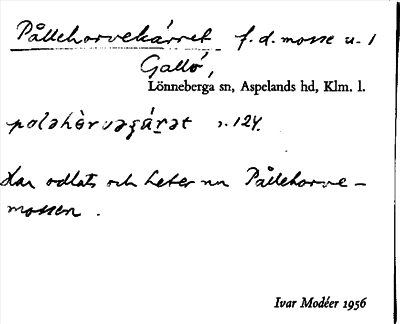 Pållehorvekärret f.d. mosse u. 1
Gallö,
Lönneberga sn, Aspelands hd, Klm. l.
poləhòrvəɡáṛət s. 124.
Har odlats och heter nu Pållehorve-
mossen.
Ivar Modéer 1956